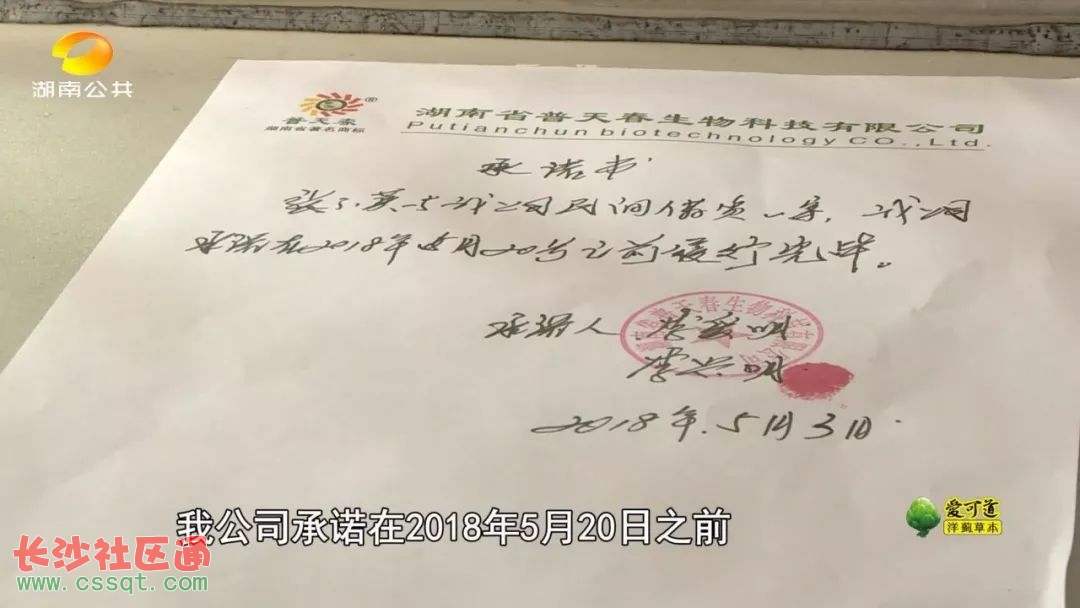 湖南公共
普天春
湖南省著名商标
®
湖南省普天春生物科技有限公司
Putianchun biotechnology CO.,Ltd.
承诺书
与我公司民间借贷一案，我公司
承诺在2018年5月20号之前履行完毕。
承诺人
2018年.5月3日
我公司承诺在2018年5月20日之前
爱可道
洋蓟草本
长沙社区通
www.cssqt.com